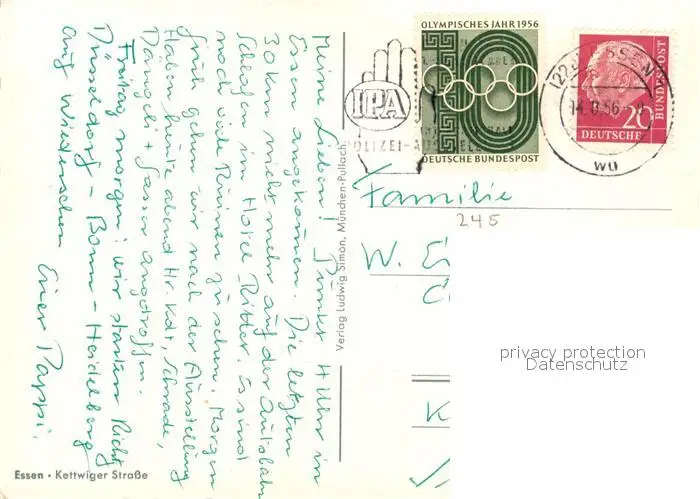 Meine Lieben! Punkt 11 Uhr in
Essen angekommen. Die letzten
30 km nicht mehr auf der Autobahn
Schlafen im Hotel Ritter. Es sind
noch viele Ruinen zu sehen. Morgen
früh gehen wir nach der Ausstellung
Haben heute abend Hr. Kdt. Schrade,
Dängeli + Gasser angetroffen.
Freitag morgen: wir starten Richtg
Düsseldorf - Bonn - Heidelberg
Auf Wiedersehen
Euer Pappi.
Essen • Kettwiger Straße
Verlag Ludwig Simon, München-Pullach
IPA
POLIZEI-
OLYMPISCHES JAHR 1956
DEUTSCHE BUNDESPOST
20
DEUTSCHE
BUNDESPOST
(22a) ESSEN
56
wu
Familie
245
W.
privacy protection
Datenschutz